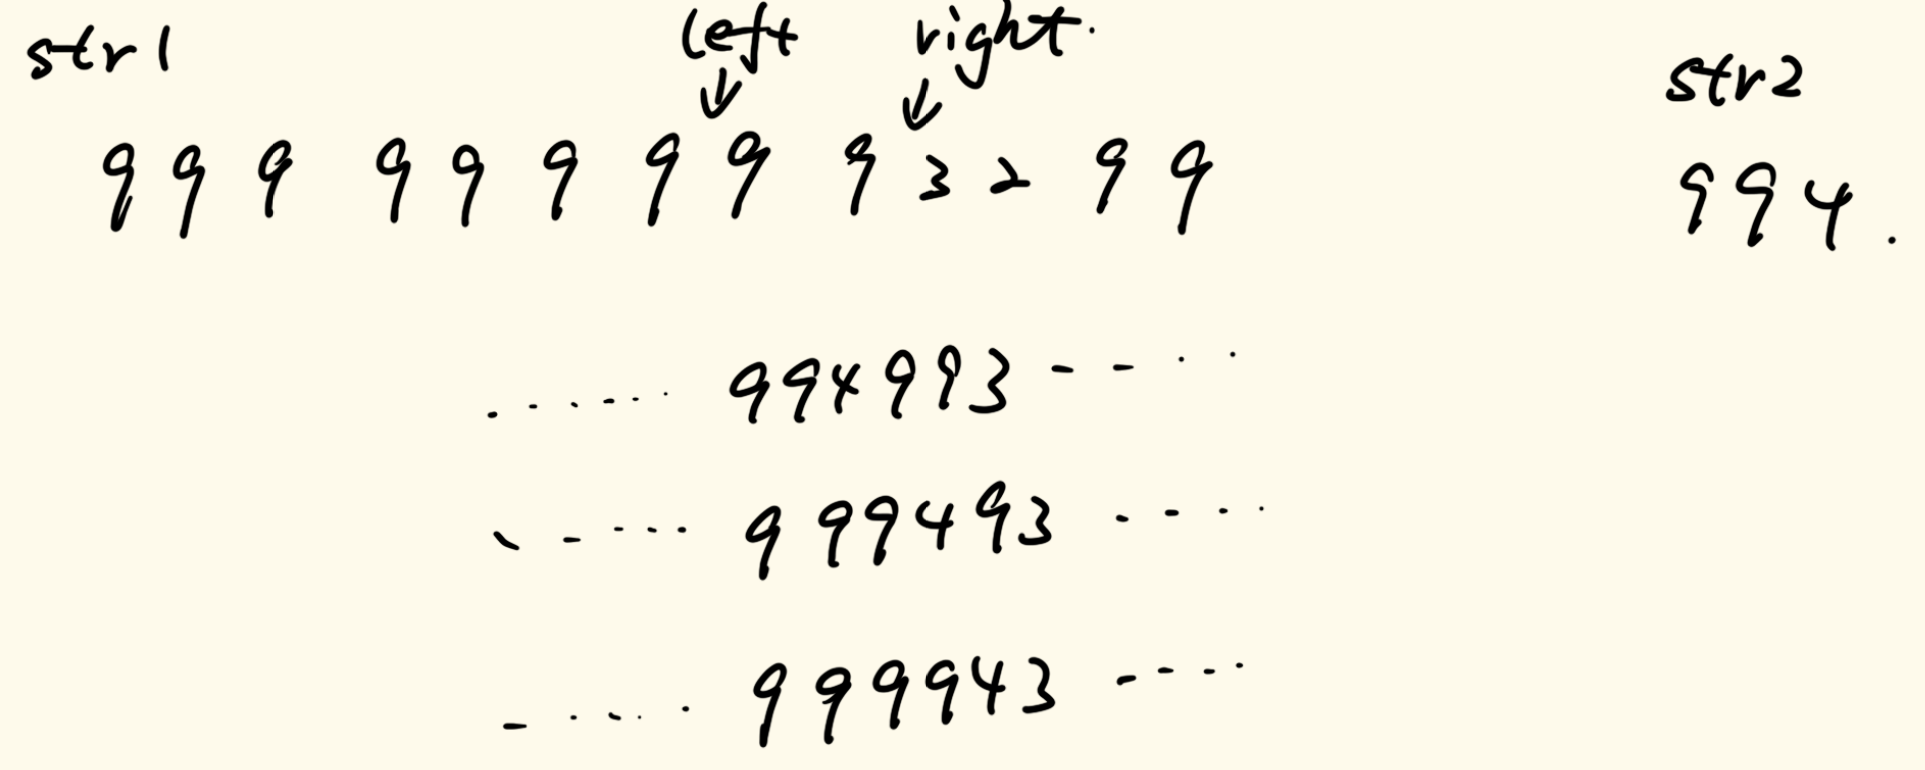 str1 left right. str2
9 9 9 9 9 9 9 9 9 3 2 9 9 994.
...... 994993 -- ..
-- ... 999493 -- ..
- ... . 999943 - - - .